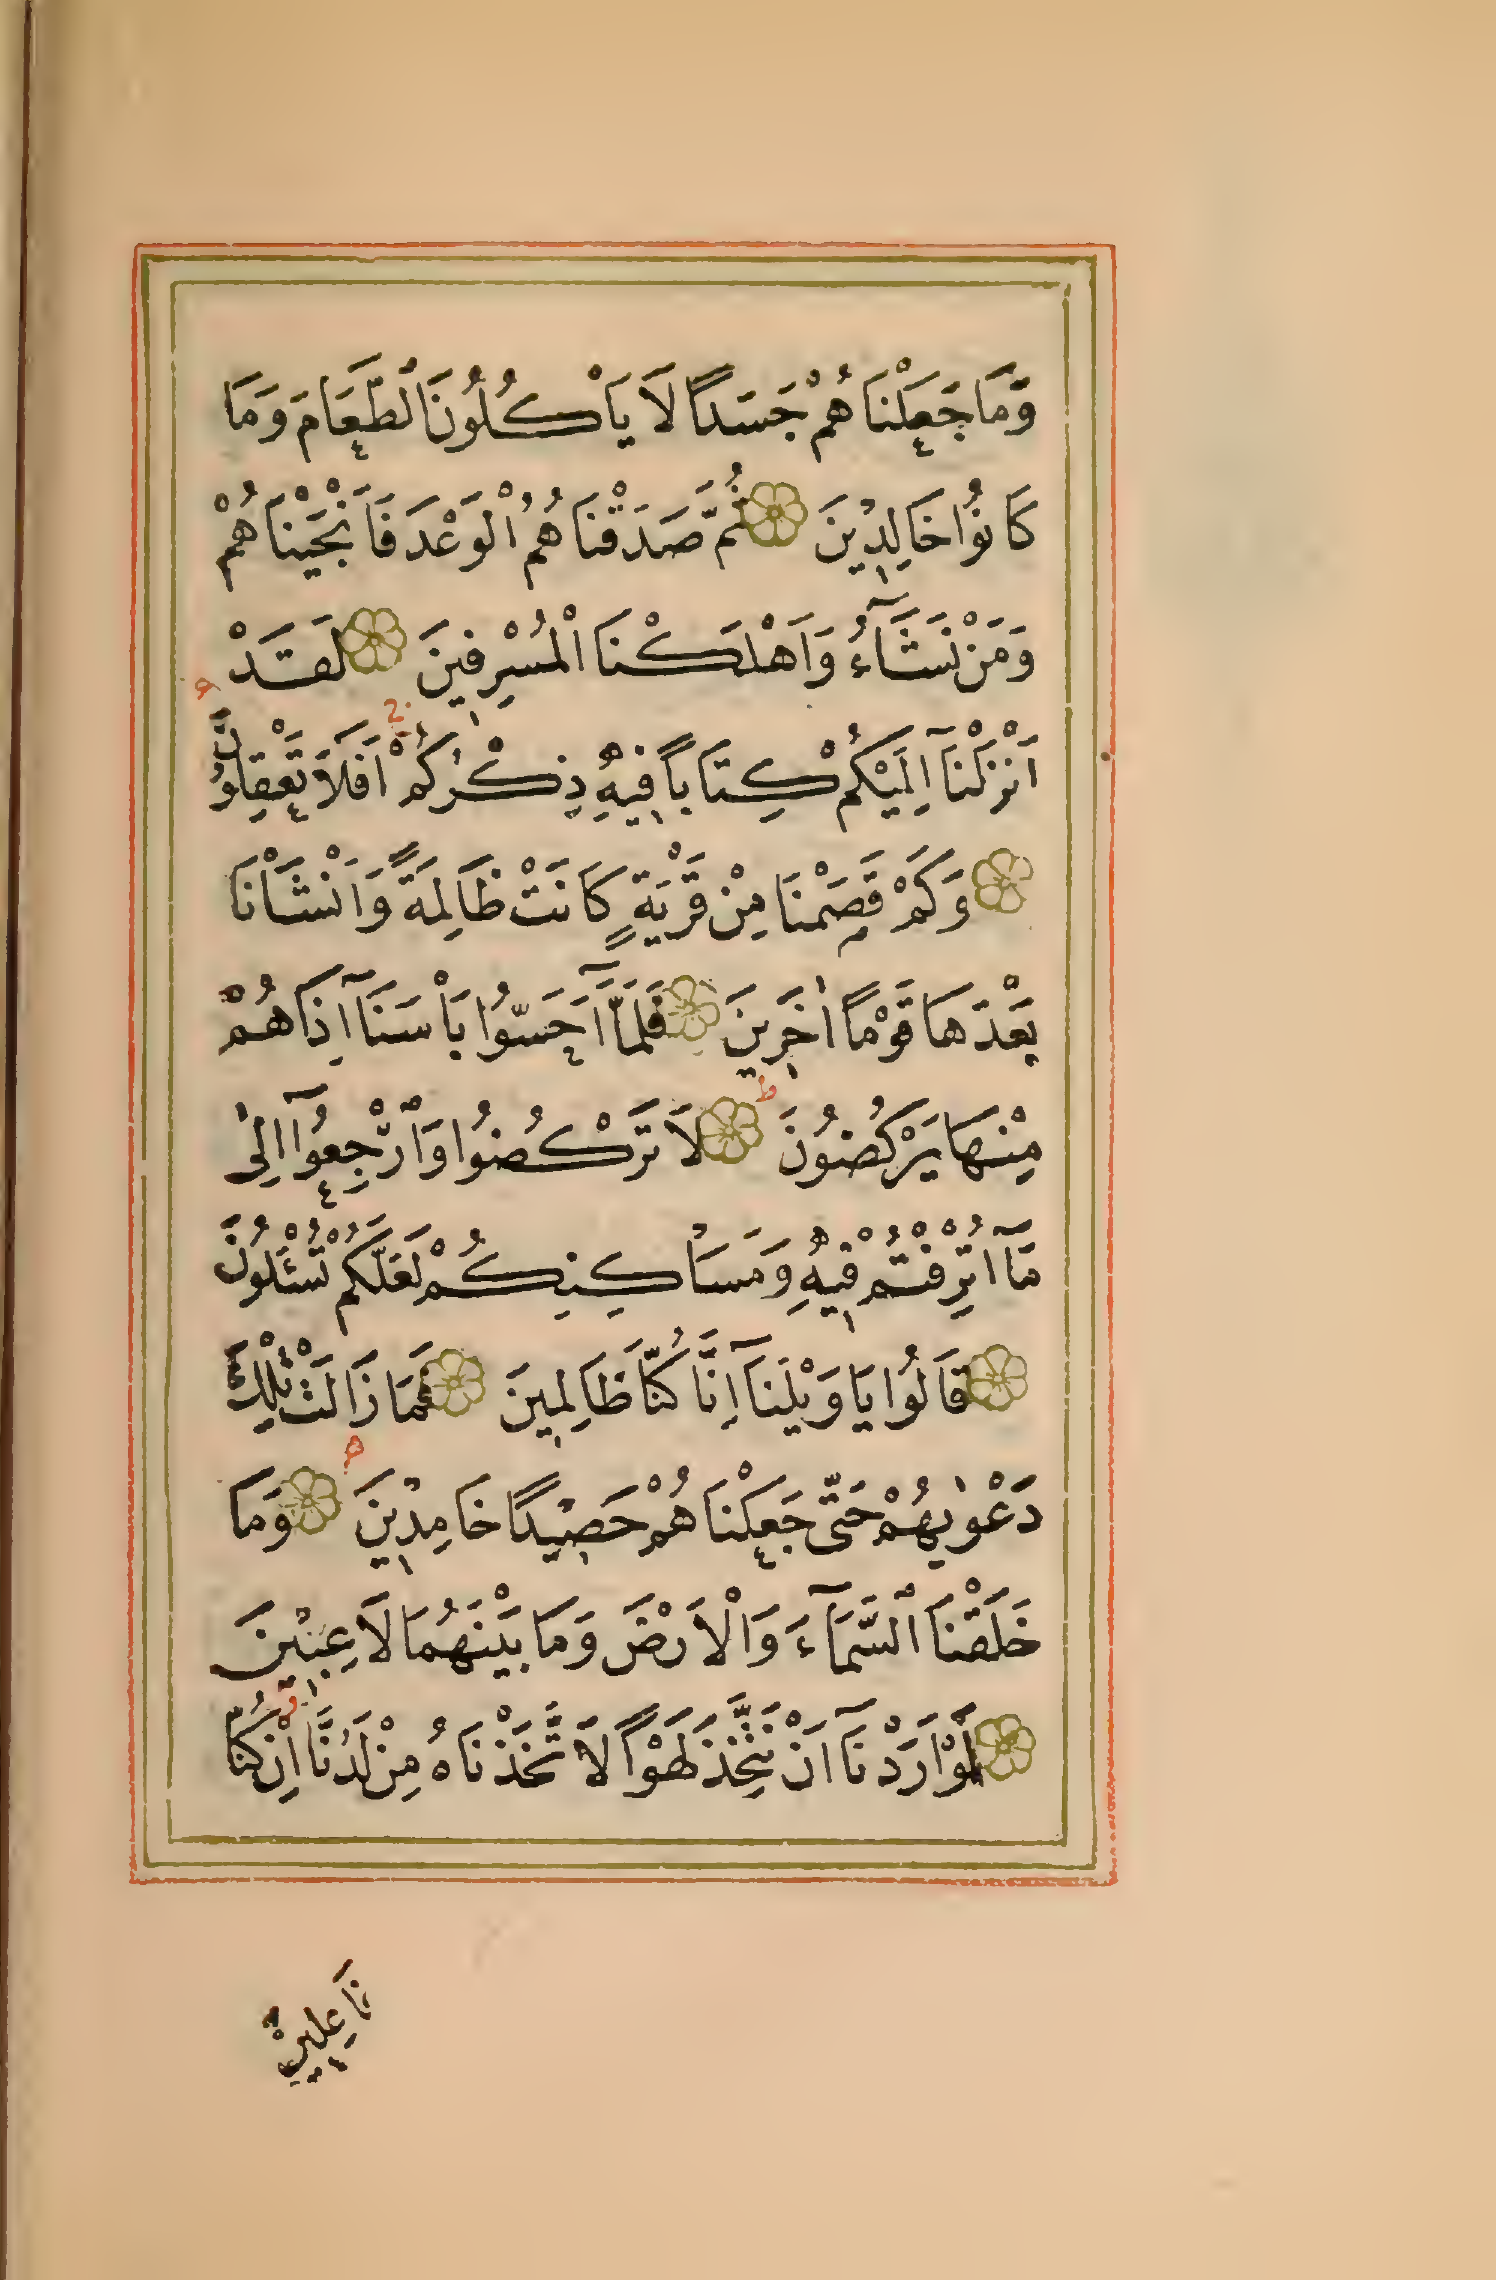 وَمَا جَعَلْنَاهُمْ جَسَدًا لَا يَاْكُلُونَ الطَّعَامَ وَمَا
كَانُوا خَالِدِينَ ثُمَّ صَدَقْنَاهُمُ الْوَعْدَ فَاَنْجَيْنَاهُمْ
وَمَنْ نَشَٓاءُ وَاَهْلَكْنَا الْمُسْرِفِينَ لَقَدْ
اَنْزَلْنَٓا اِلَيْكُمْ كِتَابًا فِيهِ ذِكْرُكُمْ اَفَلَا تَعْقِلُونَ
وَكَمْ قَصَمْنَا مِنْ قَرْيَةٍ كَانَتْ ظَالِمَةً وَاَنْشَاْنَا
بَعْدَهَا قَوْمًا اٰخَرِينَ فَلَمَّٓا اَحَسُّوا بَاْسَنَٓا اِذَا هُمْ
مِنْهَا يَرْكُضُونَ لَا تَرْكُضُوا وَارْجِعُٓوا اِلٰى
مَٓا اُتْرِفْتُمْ فِيهِ وَمَسَاكِنِكُمْ لَعَلَّكُمْ تُسْـَٔلُونَ
قَالُوا يَا وَيْلَنَٓا اِنَّا كُنَّا ظَالِمِينَ فَمَا زَالَتْ تِلْكَ
دَعْوٰيهُمْ حَتّٰى جَعَلْنَاهُمْ حَصِيدًا خَامِدِينَ وَمَا
خَلَقْنَا السَّمَٓاءَ وَالْاَرْضَ وَمَا بَيْنَهُمَا لَاعِبِينَ
لَوْ اَرَدْنَٓا اَنْ نَتَّخِذَ لَهْوًا لَاتَّخَذْنَاهُ مِنْ لَدُنَّا اِنْ كُنَّا
نَاعِلِينَ